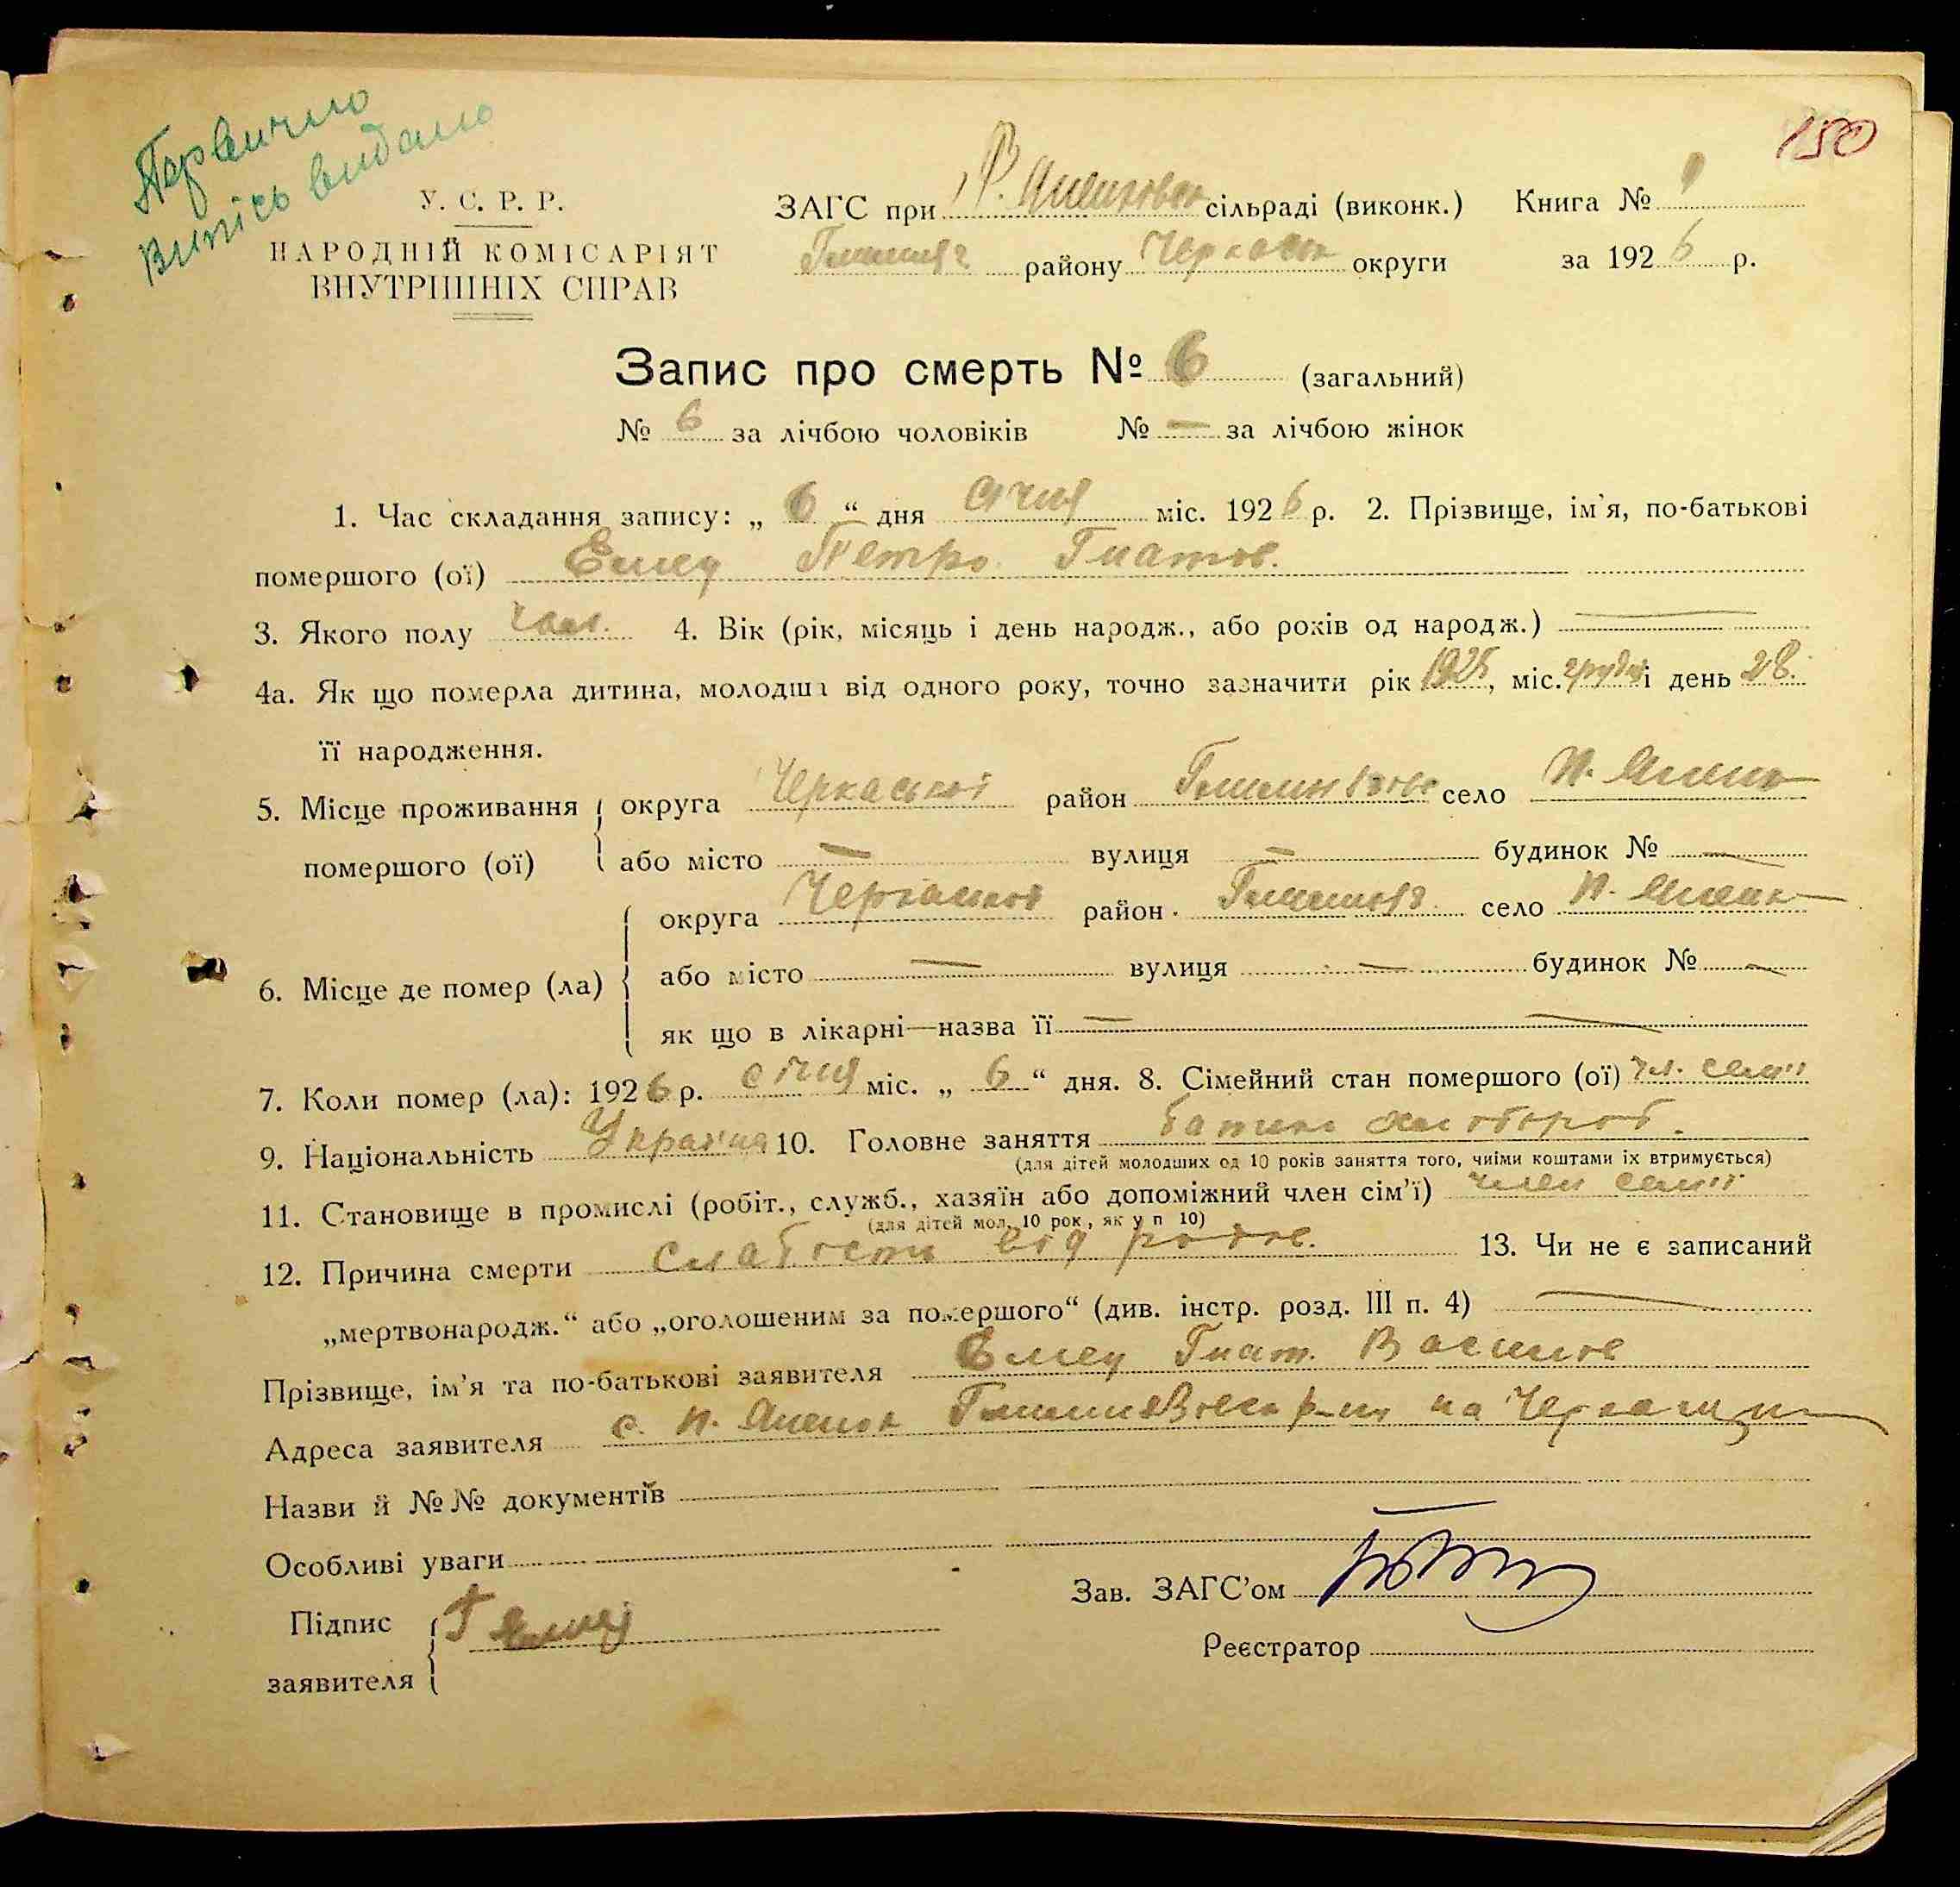 Первично
Випісь видано
150
У. С. Р. Р.
НАРОДНІЙ КОМІСАРІЯТ
ВНУТРІШНІХ СПРАВ
ЗАГС при Р. сільраді (виконк.) Книга №
району Черкась округи за 1926 р.
Запис про смерть № 6 (загальний)
№ 6 за лічбою чоловіків № — за лічбою жінок
1. Час складання запису: „ 6 “ дня січня міс. 1926 р. 2. Прізвище, ім'я, по-батькові
помершого (ої) Емец Петро Гнатов.
3. Якого полу чол. 4. Вік (рік, місяць і день народж., або років од народж.) —
4а. Як що померла дитина, молодша від одного року, точно зазначити рік 1925, міс. грудня і день 28.
її народження.
5. Місце проживання помершого (ої) округа Черкаської район село
або місто — вулиця — будинок № —
6. Місце де помер (ла) округа район село
або місто — вулиця — будинок № —
як що в лікарні—назва її —
7. Коли помер (ла): 1926 р. січня міс. „ 6 “ дня. 8. Сімейний стан помершого (ої) чл. семії
9. Національність Україна 10. Головне заняття батько хлібороб.
(для дітей молодших од 10 років заняття того, чиїми коштами їх втримується)
11. Становище в промислі (робіт., служб., хазяїн або допоміжний член сім'ї) член семії
(для дітей мол. 10 рок., як у п 10)
12. Причина смерти слабость від родов. 13. Чи не є записаний
„мертвонародж.“ або „оголошеним за помершого“ (див. інстр. розд. III п. 4) —
Прізвище, ім'я та по-батькові заявителя Емец Гнат. Васильов
Адреса заявителя с. р-ну на Черкащині
Назви й №№ документів
Особливі уваги
Зав. ЗАГС'ом
Підпис заявителя Г Емец
Реєстратор